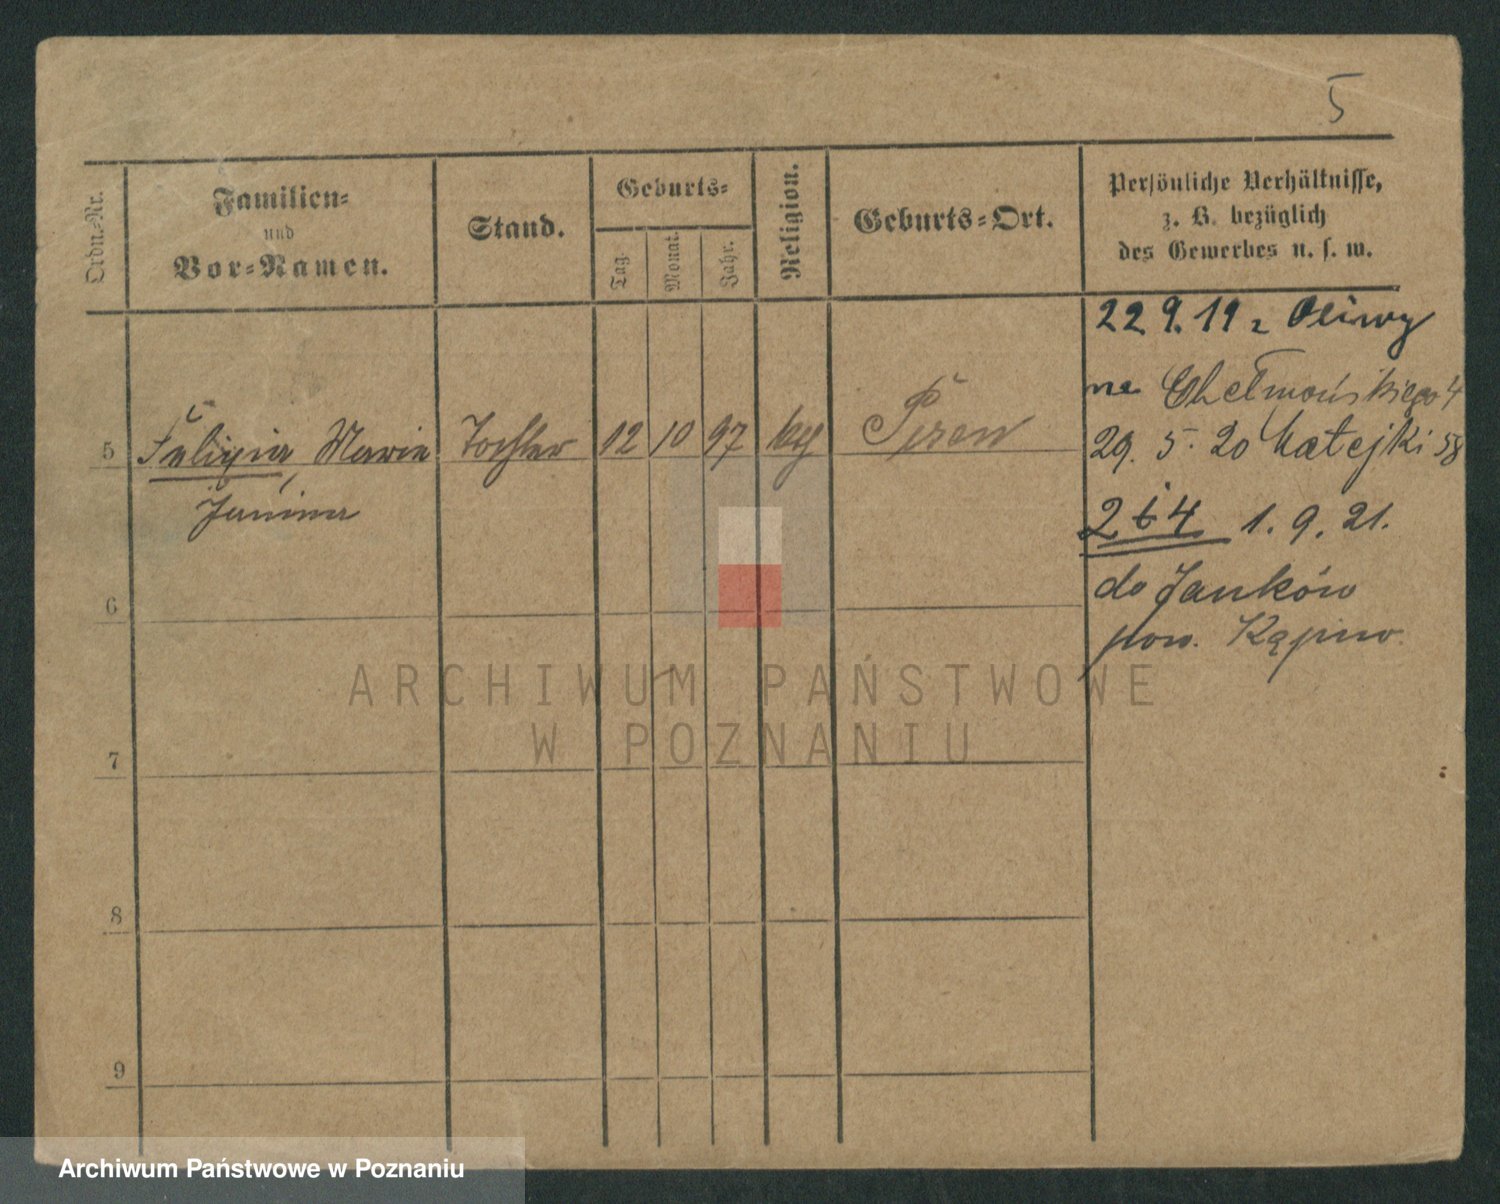 5
Ordn.-Nr.
Familien-
und
Vor-Namen.
Stand.
Geburts-
Tag.
Monat.
Jahr.
Religion.
Geburts-Ort.
Persönliche Verhältnisse,
z. B. bezüglich
des Gewerbes u. s. w.
22 9. 19 z Oliwy
na Chełmońskiego 4
5 Felizia, Maria Tochter 12 10 97 Posen
29. 5. 20 Matejki 58
Janina
2 i 4 1. 9. 21.
do Janków
6
pow.
ARCHIWUM PAŃSTWOWE
W POZNANIU
7
8
9
Archiwum Państwowe w Poznaniu